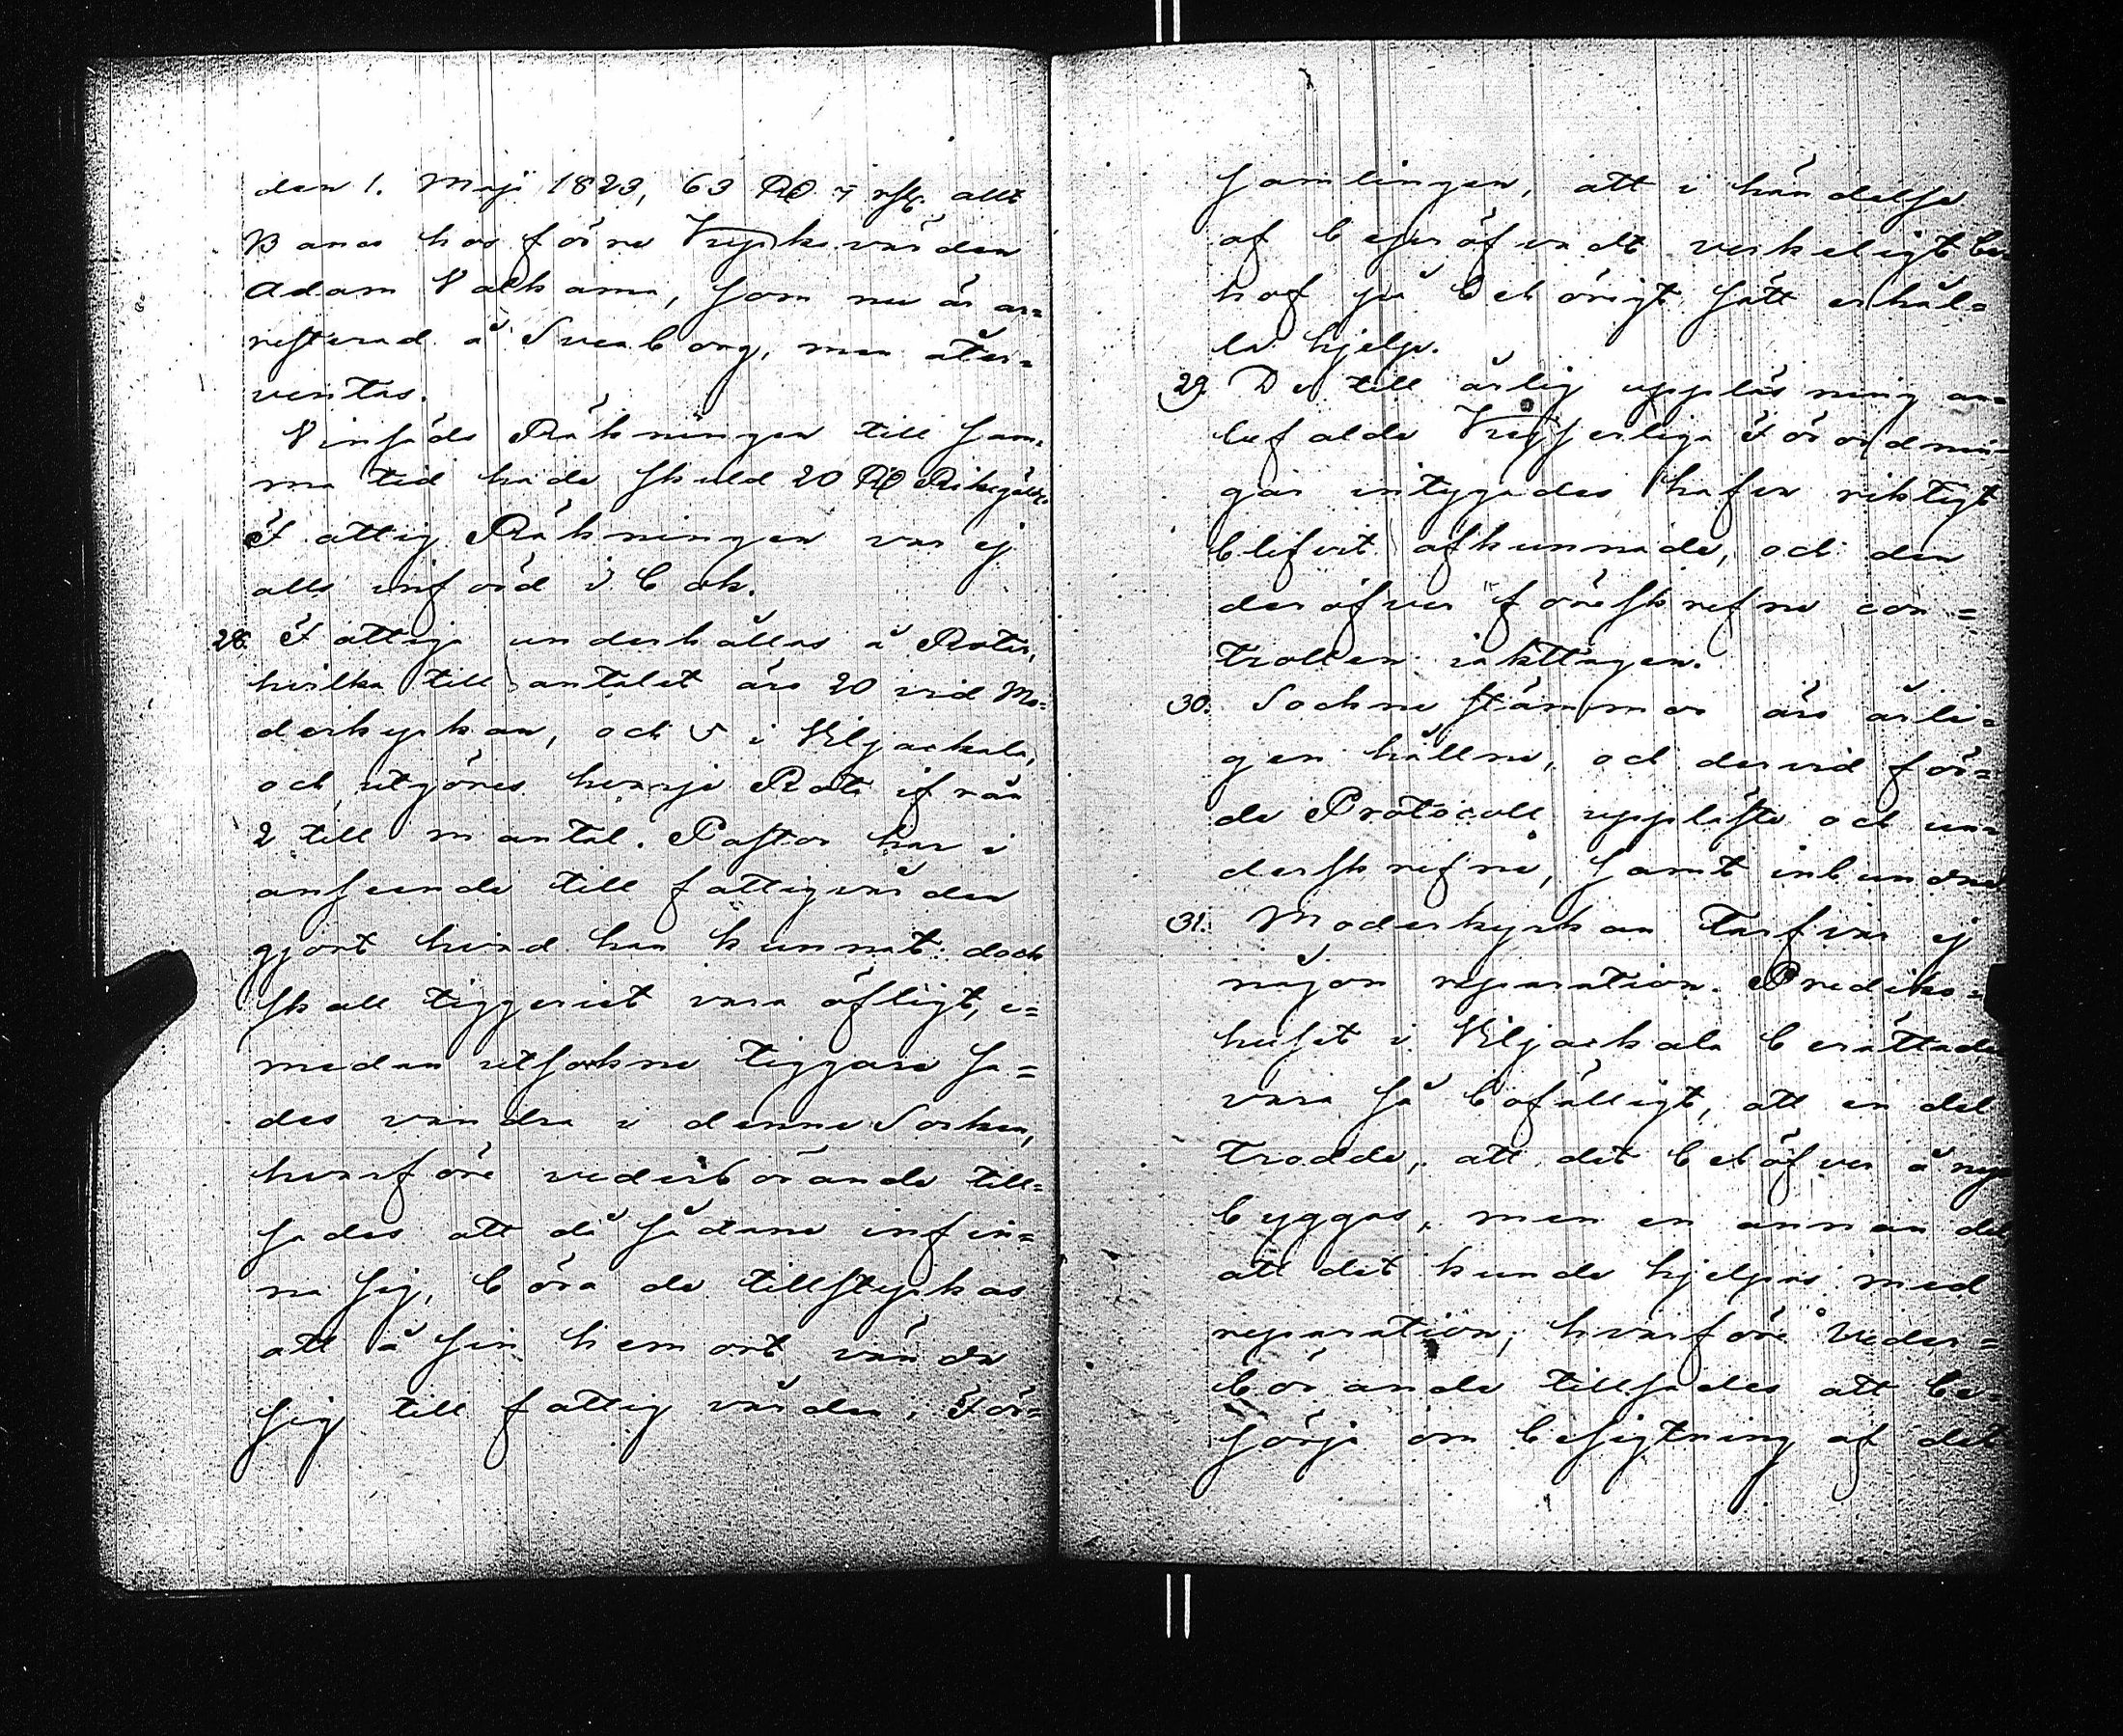 den 1. Maji 1823, 63 RD 7 rst. allt
Banco hos förre Kyrkovärden
Adam Valkama, som nu är ar=
resterad å Sveaborg, men åter=
väntas.
Vinsäds Räkningen till sam=
ma tid hade skuld 20 RD Riksgälds.
Fattig Räkningen var ej
alls införd i bok.
28. Fattige underhållas å Rotar,
hvilka till antalet äro 20 vid Mo=
derkyrkan, och 5 i Viljackala,
och utgöres hvarje Rote ifrån
2 till mantal. Pastor har i
anseende till fattigvården
gjort hvad han kunnat, doch
skall tiggeriet vara öfligt, e=
medan utsokne tiggare sa=
des vandra i denne Socken,
hvarföre vederbörande till=
sades att då sådane infin=
na sig, böra de tillstyrkas
att å sin hemort vända
sig till fattigvården, För=
samlingen, att i händelse
af bepröfvadt verkeligt be=
hof på behörigt sätt erhål=
la hjelp.
29. De till årlig uppläsning an=
befalde Kejserliga Förordnin=
gar intygades hafva riktigt
blifvit afkunnade, och den
deröfver föreskrefne con=
trollen iakttagen.
30. Sockne stämmor äro årli=
gen hållne, och dervid för=
de Protocoll uppläste och un=
derskrefne, samt inbundne
31. Moderkyrkan tarfvar ej
någon reparation. Prediko=
huset i Viljackala berättades
vara så bofälligt, att en del
trodde, att det behöfver å nyo
byggas, men en annan del
att det kunde hjelpas med
reparation, hvarföre Veder=
börande tillsades att be=
sörja om besigtning af det